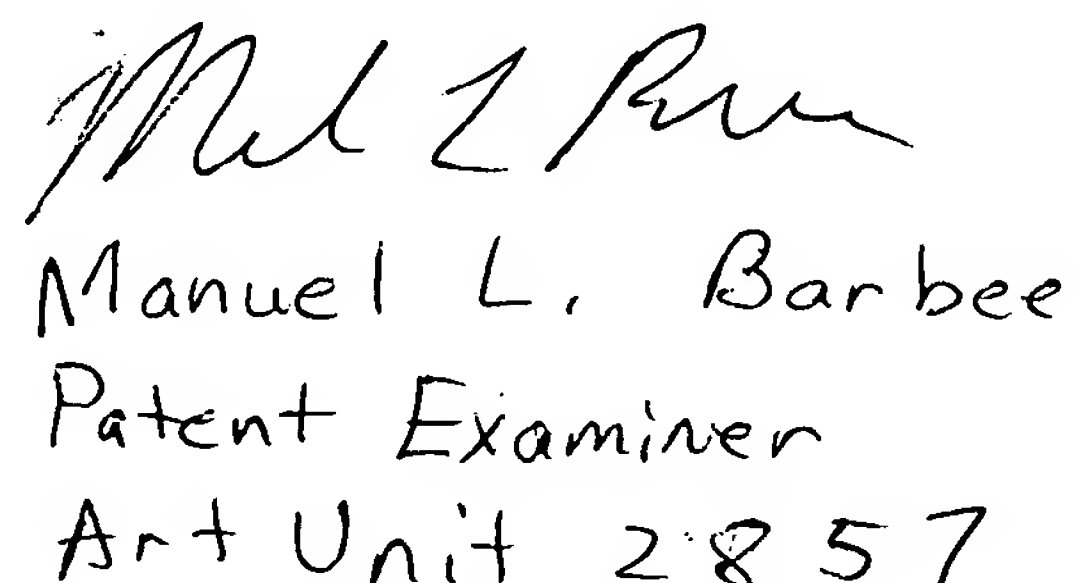 Manuel L. Barbee
Patent Examiner
Art Unit 2857